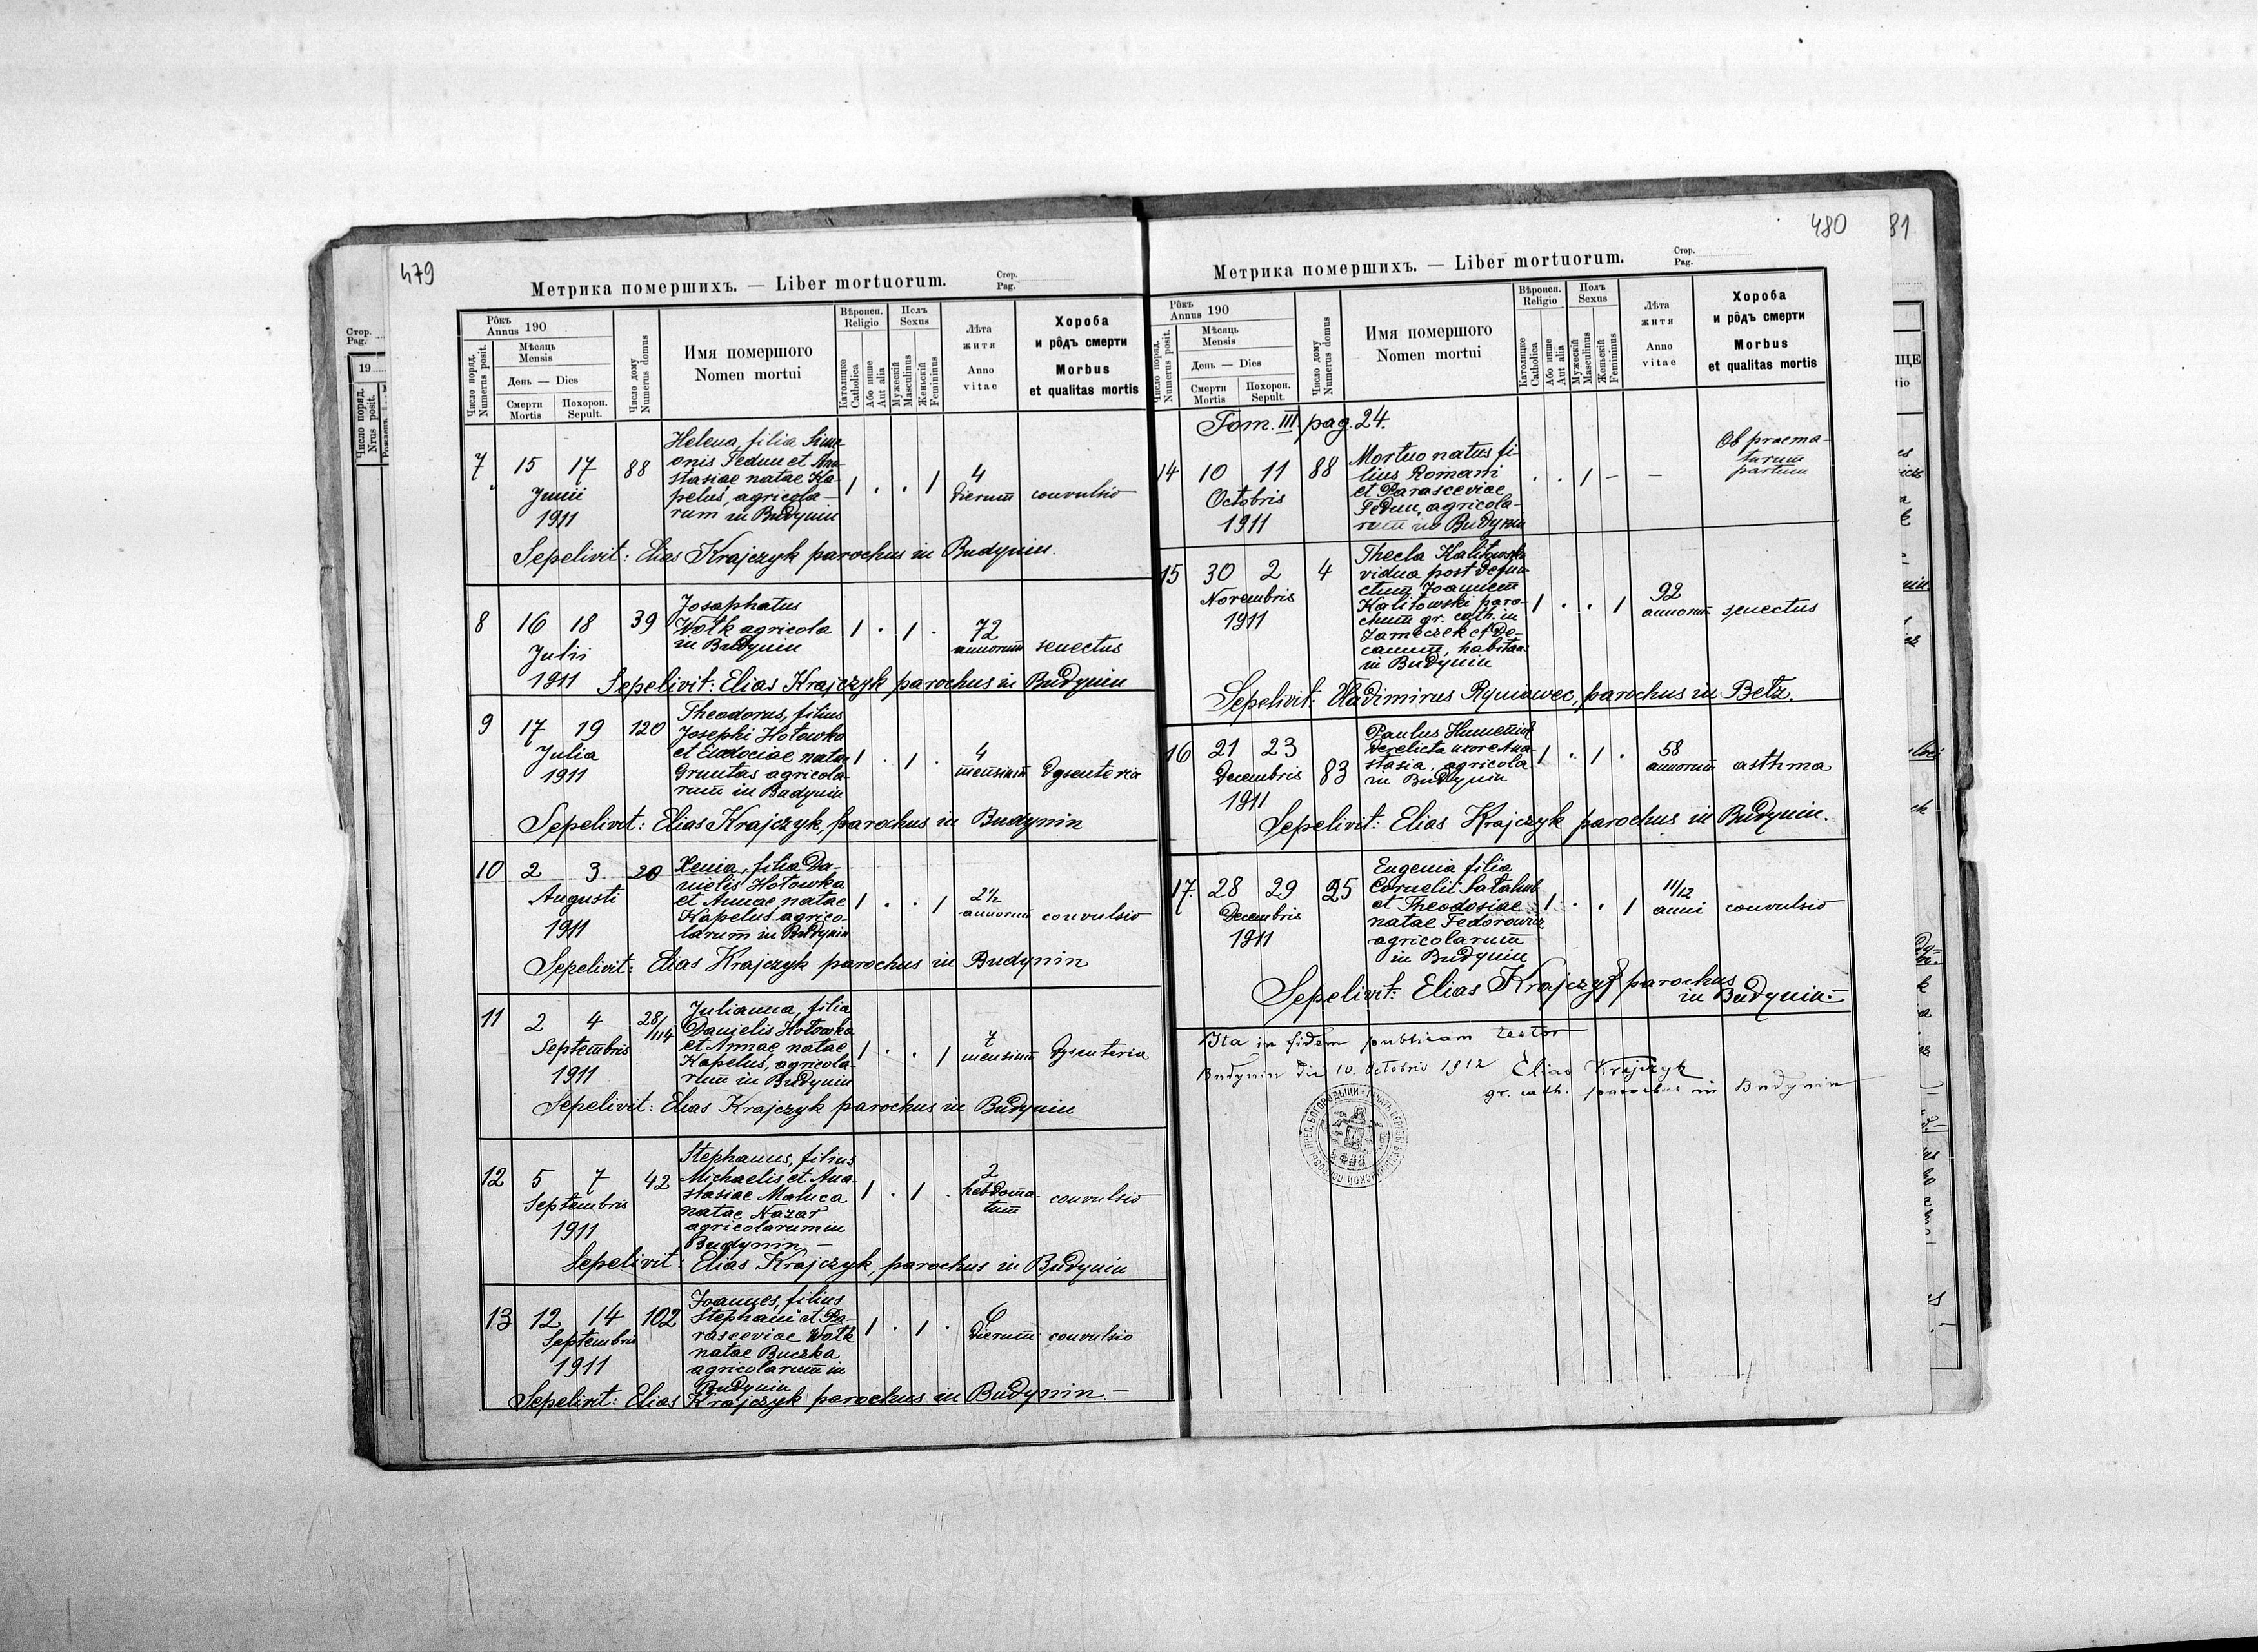 479
Метрика померших­ъ. — Liber mortuorum.
Стор.
Pag.
Рôкъ
Annus 190
Число поряд.
Numerus posit.
Мѣсяць
Mensis
День — Dies
Смерти
Mortis
Похорон.
Sepult.
Число дому
Numerus domus
Имя помершого
Nomen mortui
Вѣроисп.
Religio
Католицке
Catholica
Або инше
Aut alia
Полъ
Sexus
Мужескій
Masculinus
Женьскій
Femininus
Лѣта
житя
Anno
vitae
Хороба
и рôдъ смерти
Morbus
et qualitas mortis
7 15 17 88 Helena, filia Sime
onis Fedun et Ana-
stasiae natae Ka-
pelus, agricola-
rum in Budynin
Junii
1911
1 . . 1
4
dierum convulsio
Sepelivit: Elias Krajczyk parochus in Budynin.
8 16 18 39 Josaphatus
Wołk agricola
in Budynin
Julii
1911
1 . 1 .
72
annorum senectus
Sepelivit: Elias Krajczyk parochus in Budynin
9 17 19 120 Theodorus, filius
Josephi Hołowka
et Eudociae natae
Gruntas agricola-
rum in Budynin
Julia
1911
1 . 1 .
4
mensium dysenteria
Sepelivit: Elias Krajczyk, parochus in Budynin
10 2 3. 20 Xenia, filia Da-
nielis Hołowka
et Annae natae
Kapelus agrico-
larum in Budynin
Augusti
1911
1 . . 1
2½
annorum convulsio
Sepelivit: Elias Krajczyk parochus in Budynin
11 2 4 28/114 Julianna, filia
Danielis Hołowka
et Annae natae
Kapelus, agricola-
rum in Budynin
Septembris
1911
1 . . 1
7
mensium dysenteria
Sepelivit: Elias Krajczyk parochus in Budynin
12 5 7 42 Stephanus, filius
Michaelis et Ana-
stasiae Maluca
natae Nazar
agricolarum in
Budynin —
Septembris
1911
1 . 1 .
2
hebdoma-
tum
convulsio
Sepelivit: Elias Krajczyk, parochus in Budynin
13 12 14 102 Joannes, filius
Stephani et Pa-
rasceviae Wołk
natae Buczka
agricolarum in
Budynin
Septembris
1911
1 . 1 .
6
dierum convulsio
Sepelivit: Elias Krajczyk parochus in Budynin. —
480
Метрика помершихъ. — Liber mortuorum.
Стор.
Pag.
Рôкъ
Annus 190
Число поряд.
Numerus posit.
Мѣсяць
Mensis
День — Dies
Смерти
Mortis
Похорон.
Sepult.
Число дому
Numerus domus
Имя помершого
Nomen mortui
Вѣроисп.
Religio
Католицке
Catholica
Або инше
Aut alia
Полъ
Sexus
Мужескій
Masculinus
Женьскій
Femininus
Лѣта
житя
Anno
vitae
Хороба
и рôдъ смерти
Morbus
et qualitas mortis
Tom. III pag. 24.
14 10 11 88 Mortuo natus fi-
lius Romani
et Parasceviae
Fedun, agricola-
rum in Budynin
Octobris
1911
. . 1 – –
Ob praema-
turum
partum
15 30 2 4 Thecla Kalitowska
vidua post defun-
ctum Joannem
Kalitowski paro-
chum gr. cath. in
Zameczek et De-
canum, habitans
in Budynin
Novembris
1911
1 . . 1
92
annorum senectus
Sepelivit: Vladimirus Ryniawec, parochus in Bełz.
16 21 23 83 Paulus Humeniuk
derelicta uxore Ana-
stasia, agricola
in Budynin
Decembris
1911
1 . 1 .
58
annorum asthma
Sepelivit: Elias Krajczyk parochus in Budynin.
17. 28 29 25 Eugenia filia
Cornelii Sałahub
et Theodosiae
natae Fedorowicz
agricolarum
in Budynin
Decembris
1911
1 . . 1
11/12
anni convulsio
Sepelivit: Elias Krajczyk parochus
in Budynin.=
Ita in fidem publicam testor
Budynin die 10. Octobris 1912 Elias Krajczyk
gr. cath. parochus in Budynin
81
Стор.
Pag.
19
Число поряд.
Nrus posit.